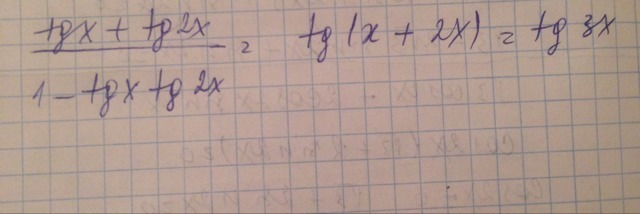 tgx + tg2x / 1 - tgx tg2x = tg(x + 2x) = tg 3x